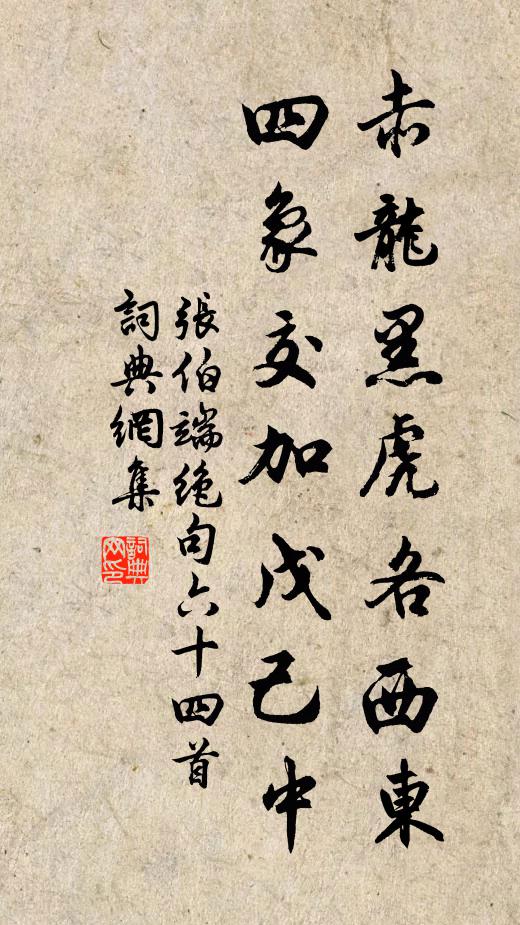 赤龍黑虎各西東
四象交加戊己中
張伯端絶句六十四首
詞典網集
詞典网印